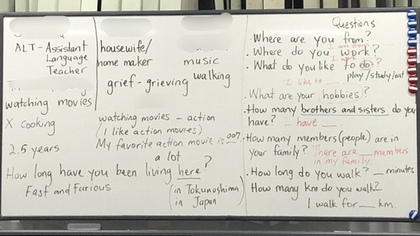 ALT - Assistant
Language
Teacher
watching movies
X cooking
2.5 years
housewife/
home maker
music
walking
grief - grieving
watching movies - action
(I like action movies)
My favorite action movie is 007.
a lot
How long have you been living here?
Fast and Furious
(in Tokunoshima)
in Japan
Questions
• Where are you from?
• Where do you work?
• What do you like to do?
play/study/eat
I like to
• What are your hobbies?
• How many brothers and sisters do you
have? I have
• How many members(people) are in
your family? There are members
in my family
• How long do you walk? minutes
How many km do you walk?
I walk for km.